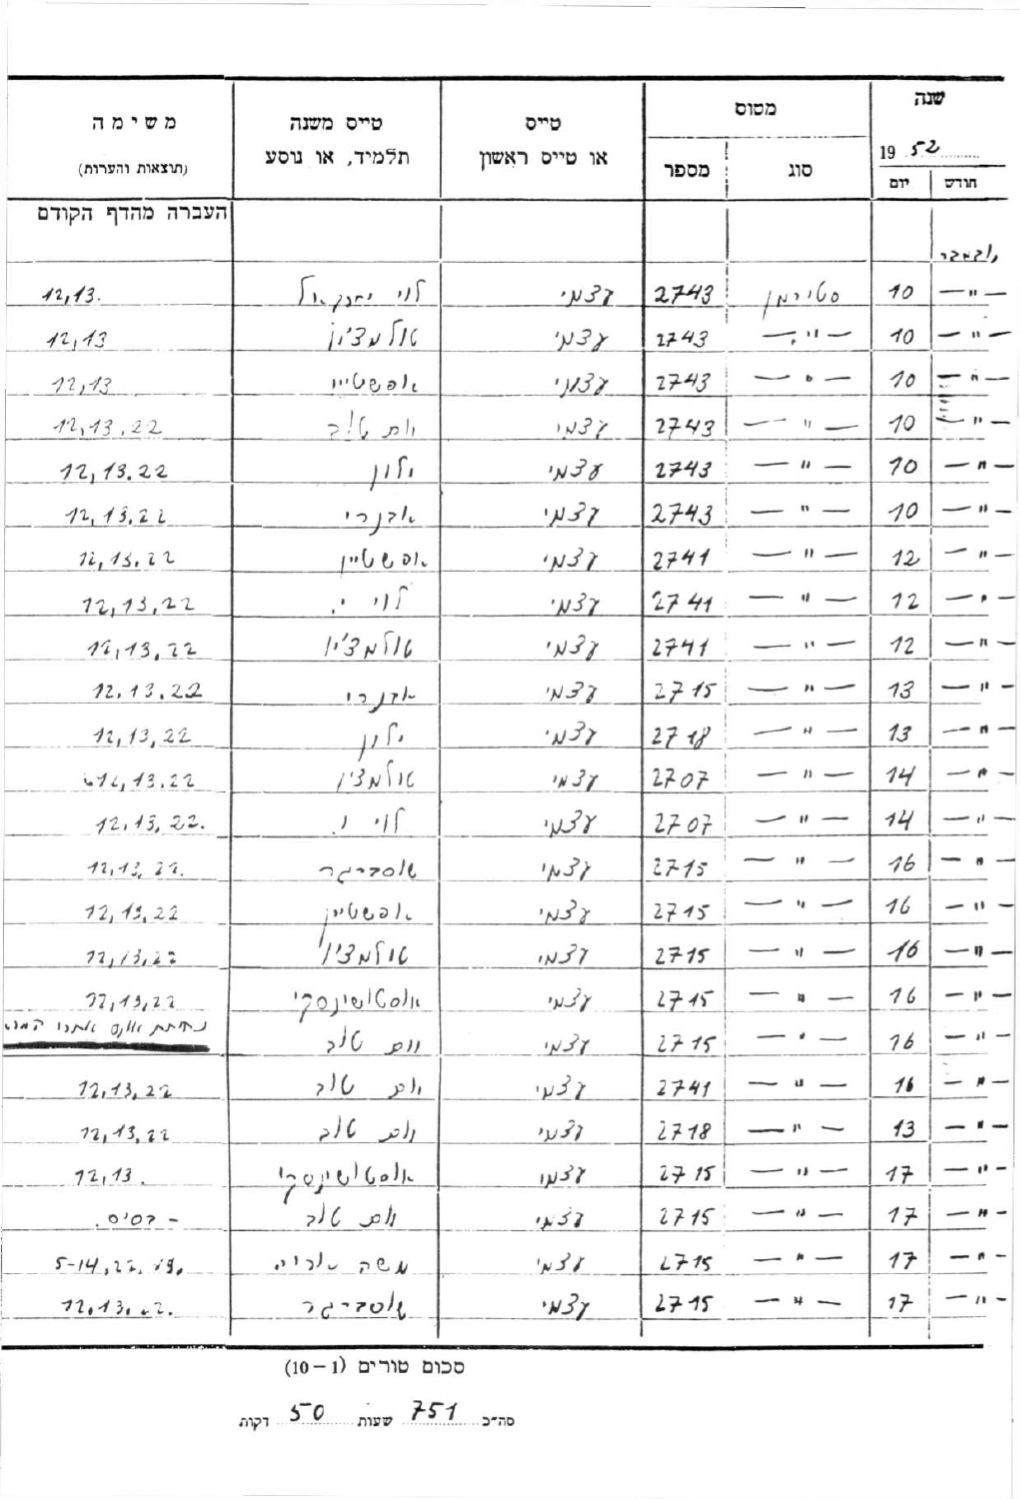 שנה
מטוס
טייס
טייס משנה
משימה
1952
או טייס ראשון
תלמיד, או נוסע
(תוצאות והערות)
סוג
מספר
חודש
יום
העברה מהדף הקודם
" 10 סטירמן 2743 עצמי לוי 12,13.
" 10 " 2743 עצמי טולמצ'יו 12,13
" 10 " 2743 עצמי אפשטיין 12,13
" 10 " 2743 עצמי שם טוב 12,13,22
" 10 " 2743 עצמי ילון 12,13.22
" 10 " 2743 עצמי אבנרי 12,13,22
" 12 " 2741 עצמי אפשטיין 12,13,22
" 12 " 2741 עצמי לוי י. 12,13,22
" 12 " 2741 עצמי טולמצ'יו 12,13,22
" 13 " 2715 עצמי אבנרי 12,13,22
" 13 " 2718 עצמי ילון 12,13,22
" 14 " 2707 עצמי טולמצ'יו 12,13,22
" 14 " 2707 עצמי לוי י. 12,13,22.
" 16 " 2715 עצמי שוסברגר 12,13,22.
" 16 " 2715 עצמי אפשטיין 12,13,22
" 16 " 2715 עצמי טולמצ'יו 12,13,22
" 16 " 2715 עצמי אוסטושינסקי 12,13,22
" 16 " 2715 עצמי שם טוב נחיתת אונס
" 16 " 2741 עצמי שם טוב 12,13,22
" 13 " 2718 עצמי שם טוב 12,13,22
" 17 " 2715 עצמי אוסטושינסקי 12,13.
" 17 " 2715 עצמי שם טוב - בסיס.
" 17 " 2715 עצמי משה אריה 5-14,22,13.
" 17 " 2715 עצמי שוסברגר 12,13,22.
סכום טורים (1–10)
סה״כ 751 שעות 50 דקות